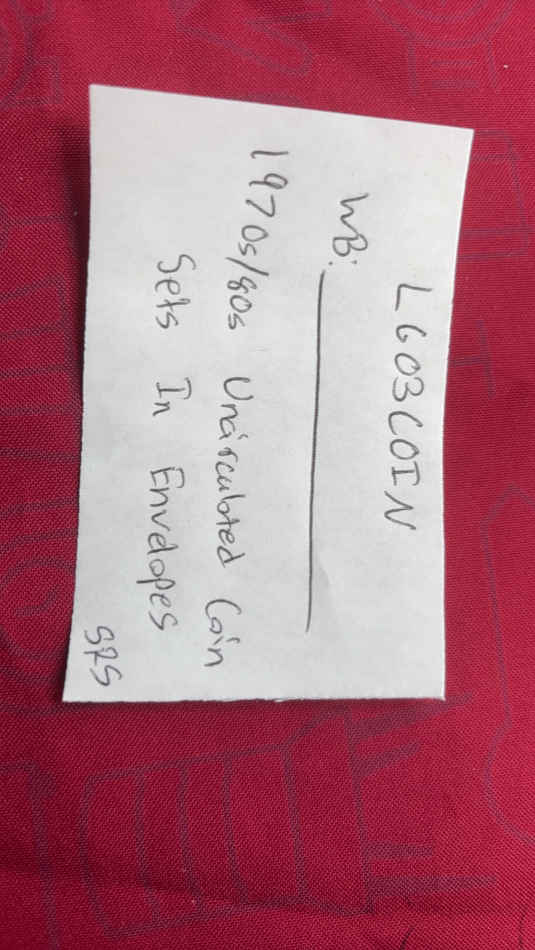 LG03COIN
WB:
1970s/80s Uncirculated Coin
Sets In Envelopes